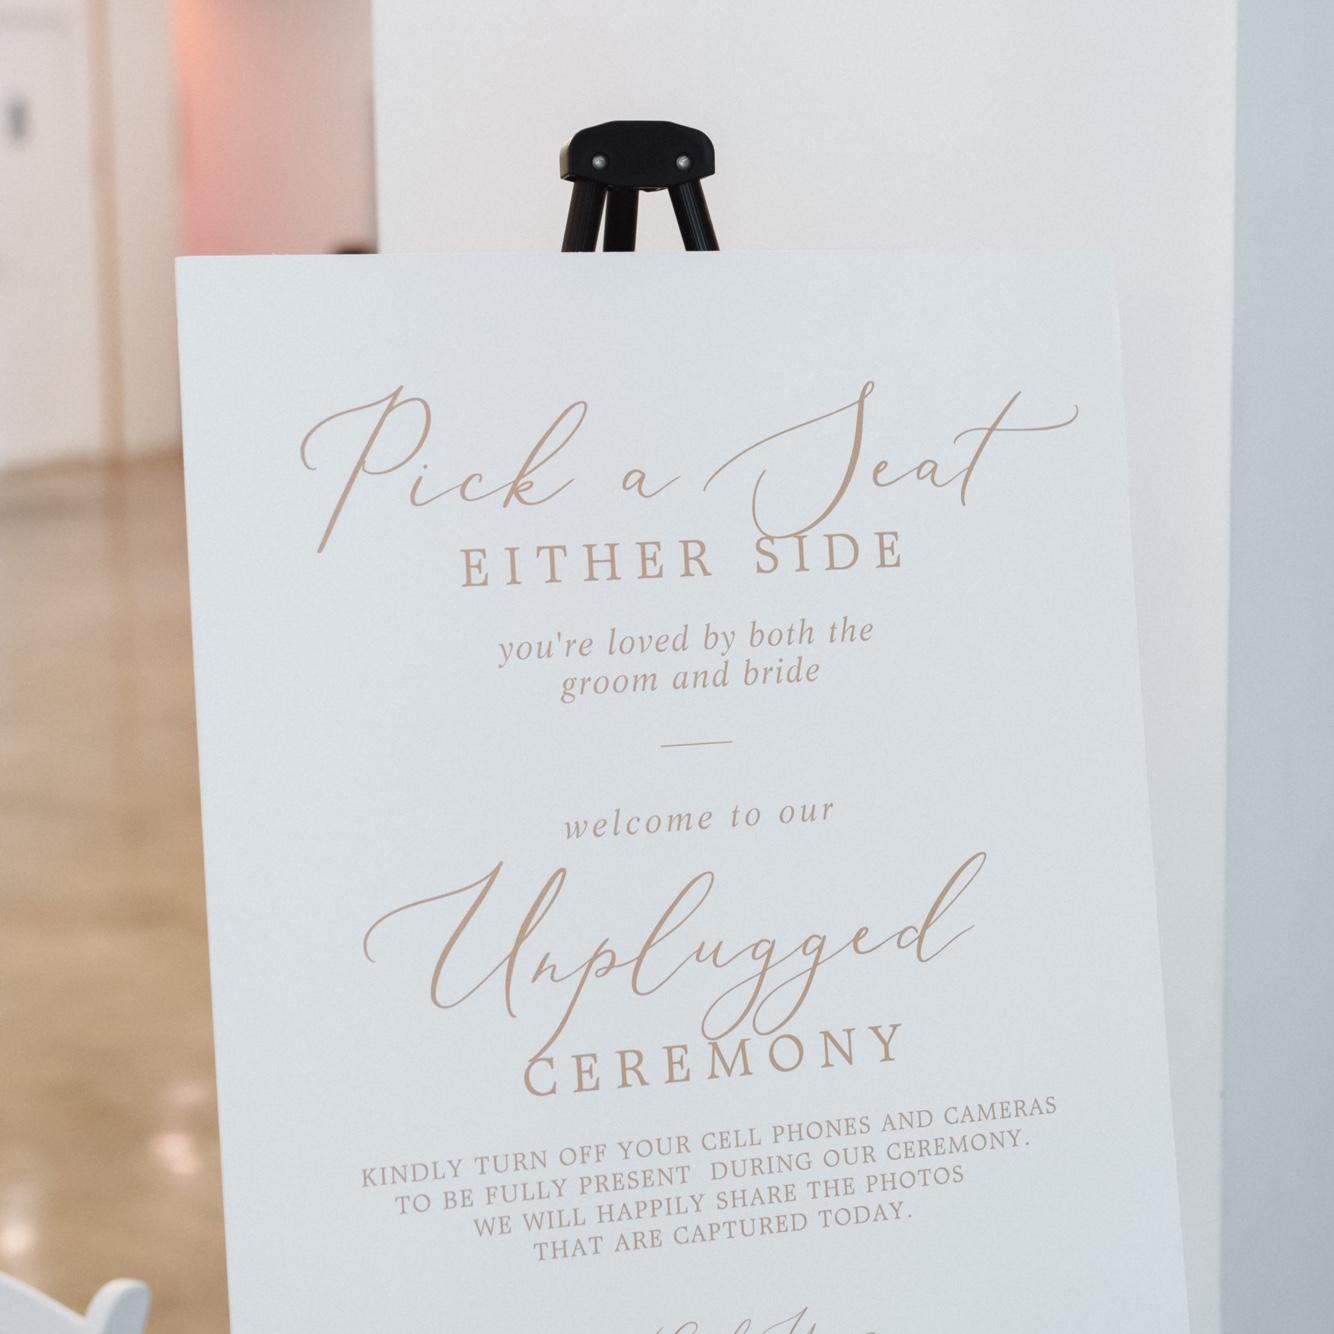 Pick a Seat
EITHER SIDE
you're loved by both the
groom and bride
welcome to our
Unplugged
CEREMONY
KINDLY TURN OFF YOUR CELL PHONES AND CAMERAS
TO BE FULLY PRESENT DURING OUR CEREMONY.
WE WILL HAPPILY SHARE THE PHOTOS
THAT ARE CAPTURED TODAY.